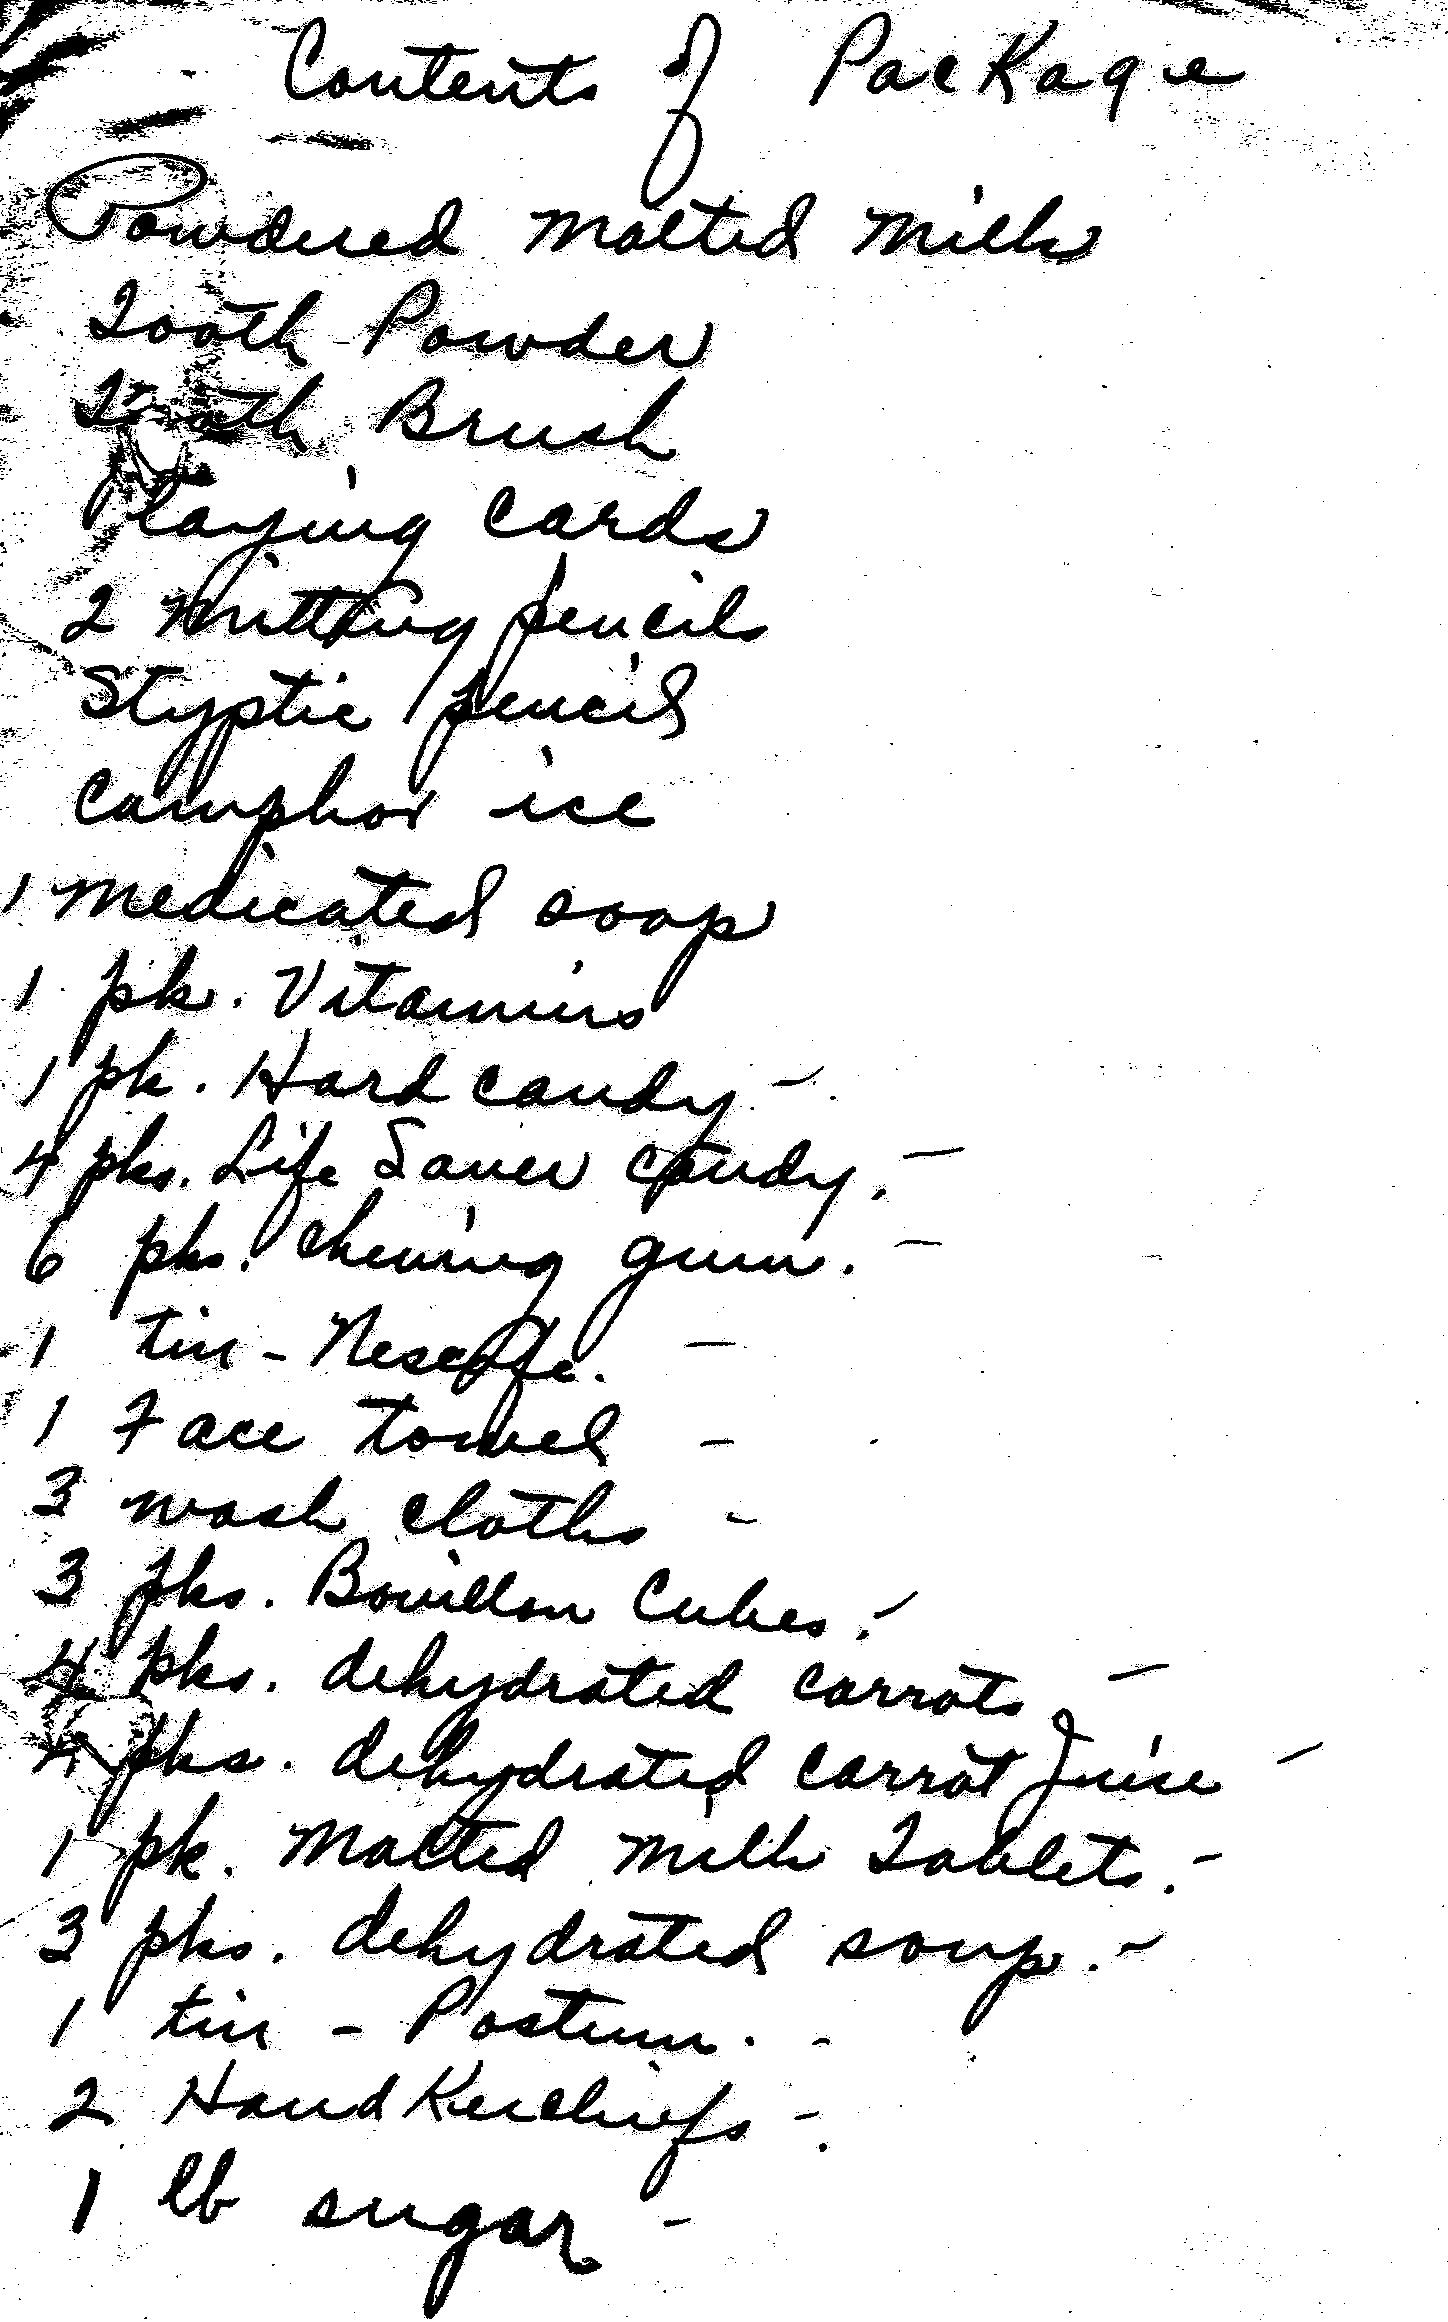 Contents of Package
Powdered Malted Milk
Tooth Powder
Tooth Brush
Playing cards
2 writing pencils
Styptic pencil
Camphor ice
1 medicated soap
1 pk. Vitamins
1 pk. Hard candy -
4 pks. Life Saver candy. -
6 pks. chewing gum. -
1 tin - Nescafe. -
1 Face towel -
3 wash cloths -
3 pks. Bouillon Cubes. -
4 pks. dehydrated carrots -
4 pks. dehydrated carrot Juice -
1 pk. Malted Milk Tablets. -
3 pks. dehydrated soup. -
1 tin - Postum. -
2 HandKerchiefs -.
1 lb sugar -